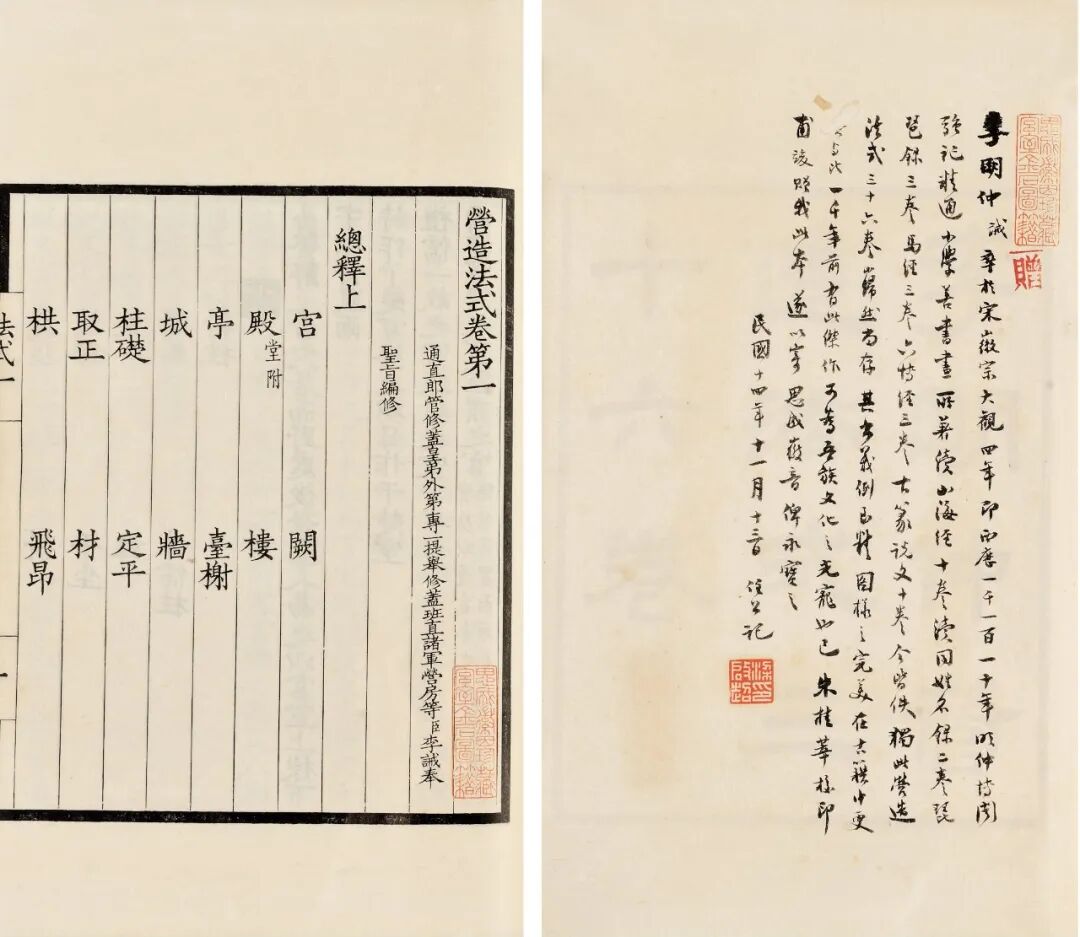 營造法式卷第一
通直郎管修蓋皇弟外第專一提舉修蓋班直諸軍營房等臣李誡奉
聖旨編修
總釋上
宮 闕
殿堂附 樓
亭 臺榭
城 牆
柱礎 定平
取正 材
栱 飛昂
法式一
李明仲誡卒於宋徽宗大觀四年即西歷一千一百一十年明仲博聞
強記精通小學善書畫所著續山海經十卷續同姓名錄二卷琵
琶錄三卷馬經三卷六博經三卷古篆說文十卷今皆佚獨此營造
法式三十六卷巋然尚存其書義例至精圖樣之完美在古籍中更
與比一千年前有此傑作可為吾族文化之光寵也已朱桂莘校印
甫竣贈我此本遂以寄思成徽音俾永寶之
民國十四年十一月十三日 任公記
贈